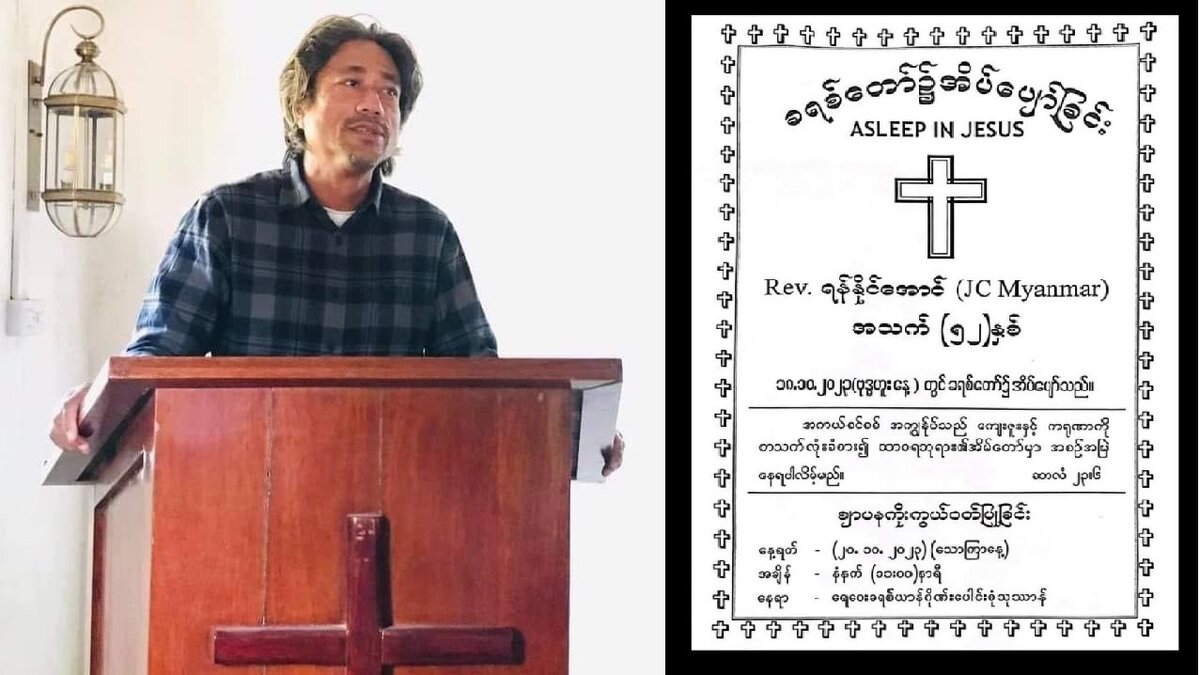 ခရစ်တော်၌အိပ်ပျော်ခြင်း
ASLEEP IN JESUS
Rev. ရန်နိုင်အောင် (JC Myanmar)
အသက် (၅၂)နှစ်
၁၈.၁၀.၂၀၂၃(ဗုဒ္ဓဟူးနေ့ ) တွင် ခရစ်တော်၌ အိပ်ပျော်သည်။
အကယ်စင်စစ် အကျွန်ုပ်သည် ကျေးဇူးနှင့် ကရုဏာကို
တသက်လုံးခံစား၍ ထာဝရဘုရား၏အိမ်တော်မှာ အစဉ်အမြဲ
နေရပါလိမ့်မည်။ ဆာလံ ၂၃း၆
ဈာပနကိုးကွယ်ဝတ်ပြုခြင်း
နေ့ရက် - (၂၀. ၁၀. ၂၀၂၃) (သောကြာနေ့)
အချိန် - နံနက် (၁၁း၀၀)နာရီ
နေရာ - ရေဝေးခရစ်ယာန်ဂိုဏ်းပေါင်းစုံသုသာန်